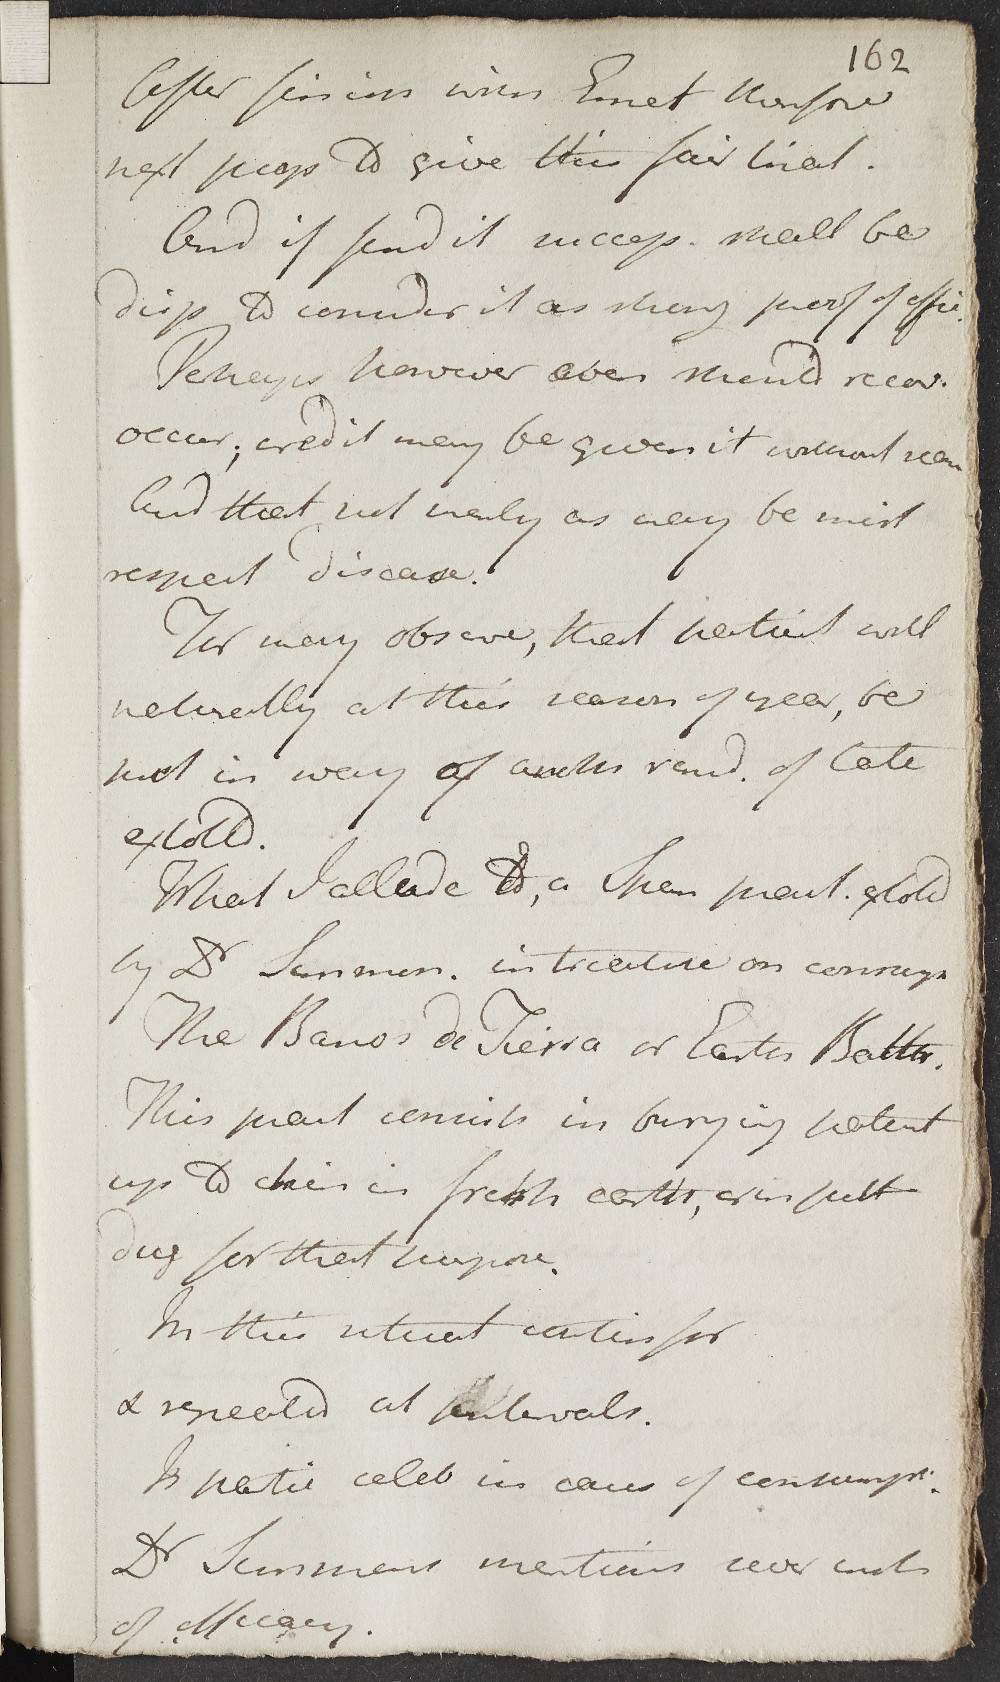 162
After finim with Emet therfore
next prop to give this fair trial.
And if find it success. shall be
disp to consider it as strong proof of effic.
Perhaps however even should recov.
occur; credit may be given it without reason
And that not merely as may be mist
respect disease.
For may observe, that patient will
naturally at this season of year, be
put in way of anoth remd. of late
extolld.
What I allude to, a Span pract. extold
by Dr Simmon. in treatise on consump
The Banos de Tierra or Earth Bath.
This pract consists in burying patient
up to chin in fresh earth, or in pitt
dug for that purpose.
In this situat contin for
& repeated at intervals.
Is partic celeb in cases of consumpt.
Dr Simmons mentions sever
of efficacy.